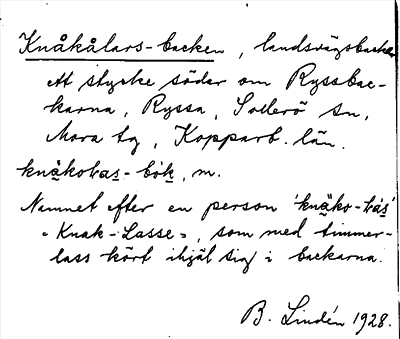 Knåkålars-backen, landsvägsbacke
ett stycke söder om Ryssbac-
karna, Ryssa, Sollerö sn,
Mora tg, Kopparb. län.
knäkolas-bòk, m.
Namnet efter en person 'knäko-lás'
"Knak-Lasse", som med timmer-
lass kört ihjäl sig i backarna.
B. Lindén 1928.